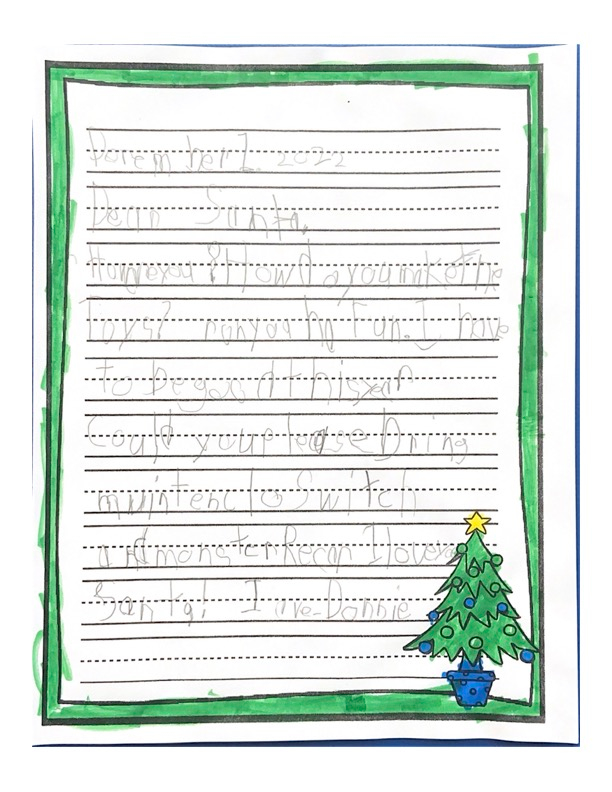 Dorember 1. 2022
Dear Santa.
you ? How do you make the
Toys? you Fun. I have
to be good this year
Could you please Dring
nintendo Switch
and monster Recan I love
Santa! love Donnie